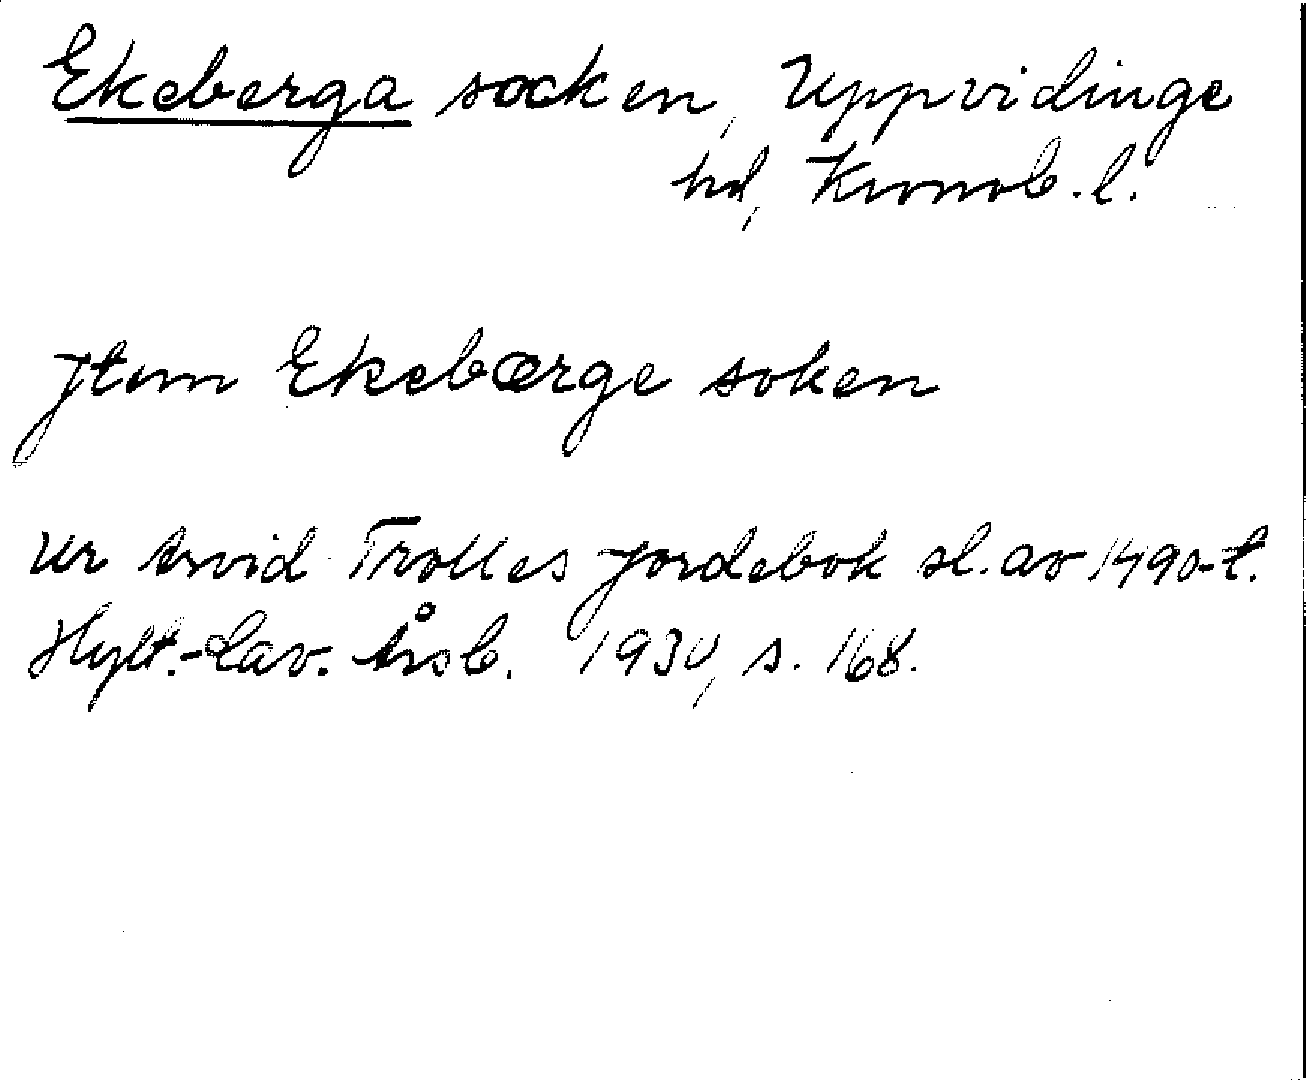 Ekeberga socken, Uppvidinge
hd, Kronob. l.
Jtem Ekebærge soken
Ur Arvid Trolles jordebok sl. av 1490-t.
Hylt.-Cav. Årsb. 1930, s. 168.